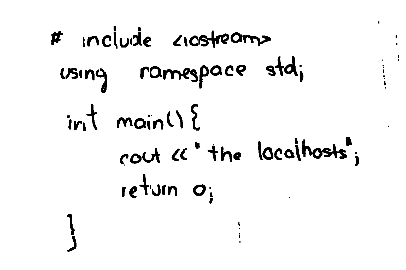 # include <iostream>
using namespace std;
int main() {
cout << " the localhosts";
return 0;
}